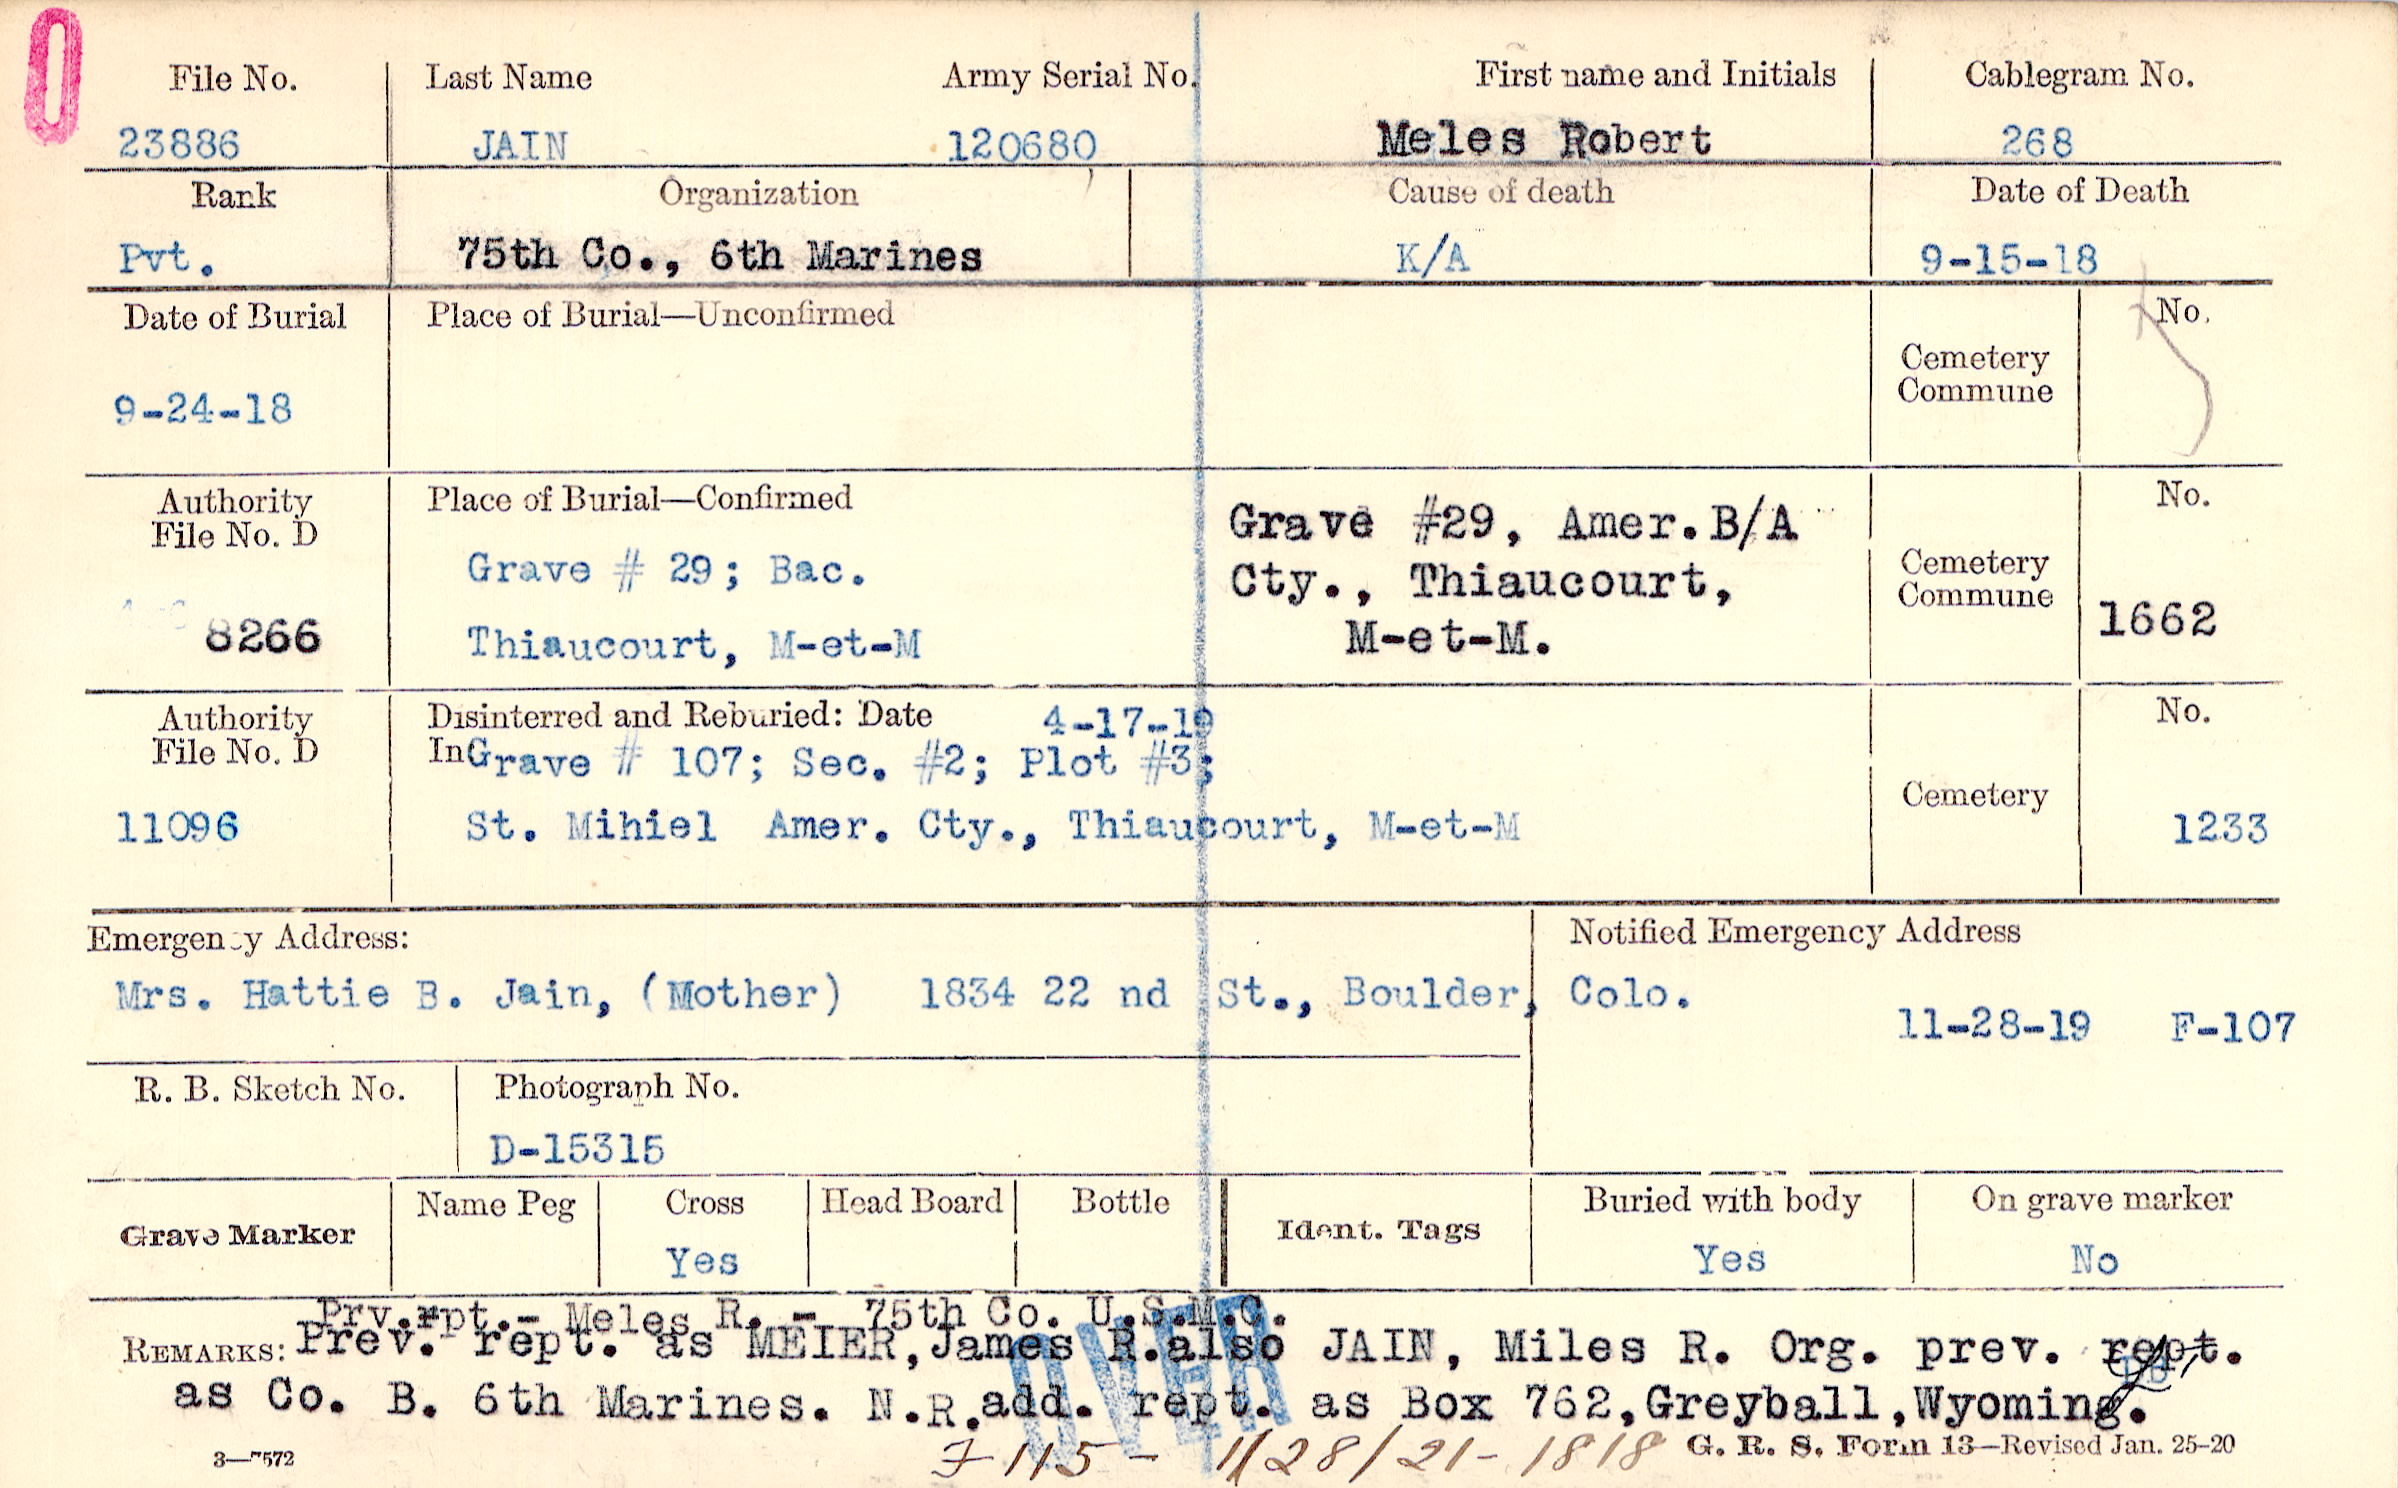 0
File No. Last Name Army Serial No. First name and Initials Cablegram No.
23886 JAIN 120680 Meles Robert 268
Rank Organization Cause of death Date of Death
Pvt. 75th Co., 6th Marines K/A 9-15-18
Date of Burial Place of Burial—Unconfirmed No.
Cemetery
Commune
9-24-18
Authority Place of Burial—Confirmed No.
File No. D
8266
Grave # 29; Bac.
Thiaucourt, M-et-M
Grave #29, Amer. B/A
Cty., Thiaucourt,
M-et-M.
Cemetery
Commune
1662
Authority Disinterred and Reburied: Date 4-17-19 No.
File No. D In Grave # 107; Sec. #2; Plot #3;
Cemetery
11096 St. Mihiel Amer. Cty., Thiaucourt, M-et-M 1233
Emergency Address: Notified Emergency Address
Mrs. Hattie B. Jain, (Mother) 1834 22 nd St., Boulder, Colo.
11-28-19 F-107
R. B. Sketch No. Photograph No.
D-15315
Grave Marker Name Peg Cross Head Board Bottle Ident. Tags Buried with body On grave marker
Yes Yes No
Prv.rpt.- Meles R. - 75th Co. U.S.M.C.
REMARKS: Prev. rept. as MEIER, James R. also JAIN, Miles R. Org. prev. rept.
as Co. B. 6th Marines. N.R. add. rept. as Box 762, Greyball, Wyoming.
OVER
3—7572
F 115 - 1/28/21 - 1818
G. R. S. Form 13—Revised Jan. 25-20